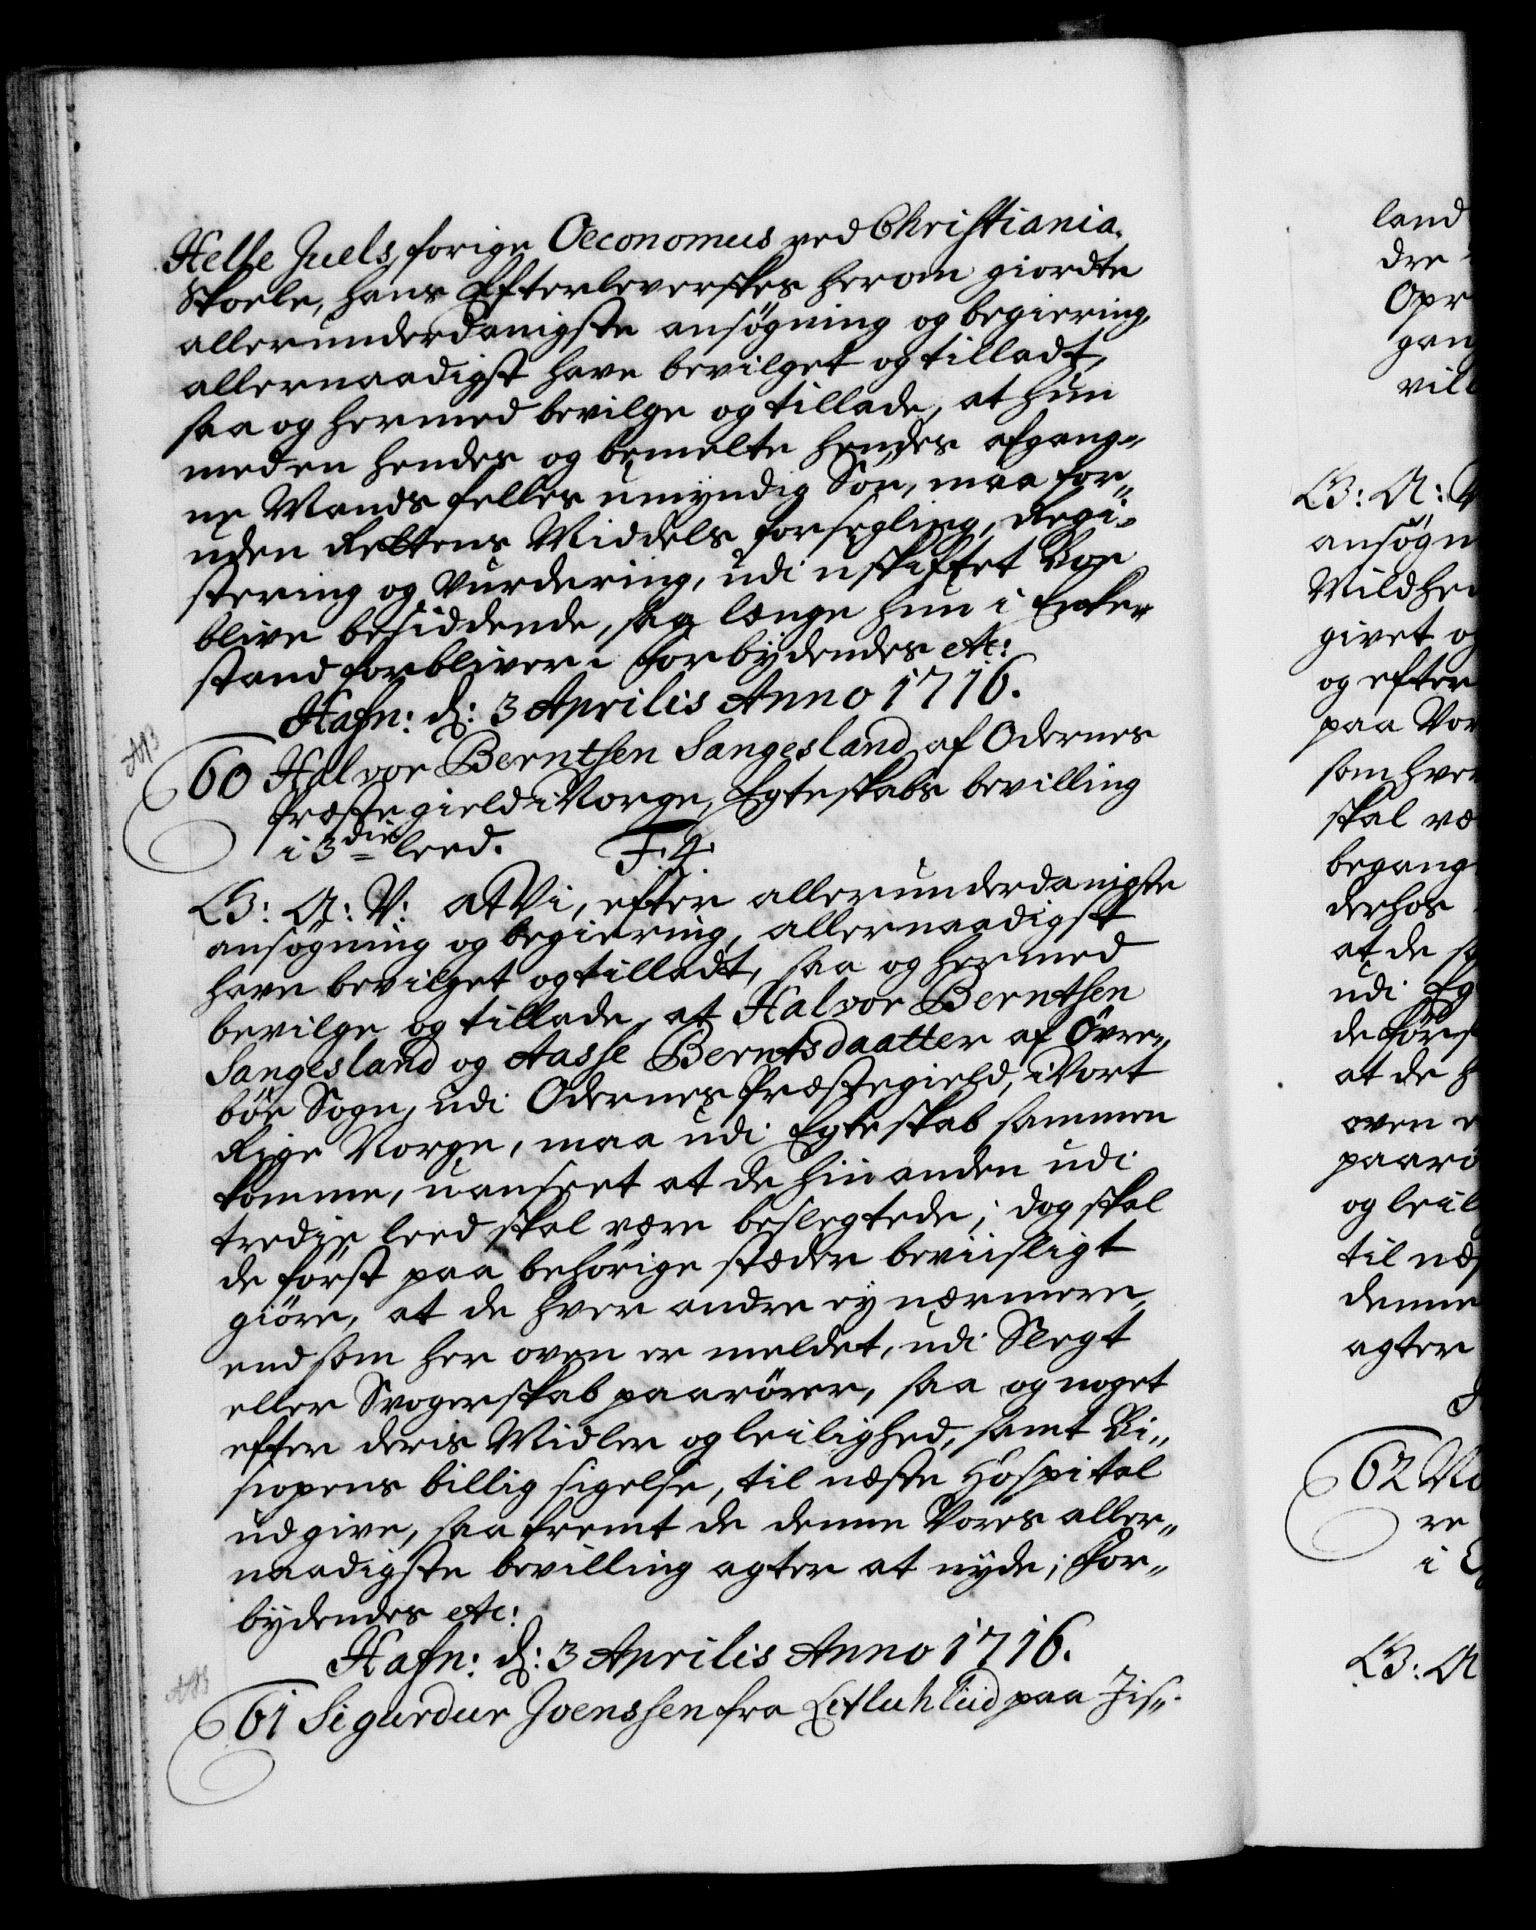 Helle Juels, forige Oeconomus ved Christiania
Skoele, hans Efterleverskes herom giordte
allerunderdanigste ansøgning og begiering,
allernaadigst have bevilget og tilladt,
saa og hermed bevilge og tillade, at hun
med en hendes og bemelte hendes afgang„
ne Mands felles umyndig Søn, maa for„
uden Rettens Middels forsegling, Regi„
stering og Vurdering, udi uskiftet Boe
blive besiddende, saa længe hun i Enke„
stand forbliver. Forbydendes etc:
Hafn: d: 3 Aprilis Anno 1716.
60 Halvor Berntsen Sangesland af Odernes
Præstegield i Norge, Egteskabs bevilling
i 3die leed. F: 4.
G: A: V: at Vi, efter allerunderdanigste
ansøgning og begiering, allernaadigst
have bevilget og tilladt, saa og hermed
bevilge og tillade, at Halvor Berntsen
Sangesland og Aasse Berntsdaatter af Øvre„
bøe Sogn, udi Odernes Præstegield, i Vort
Rige Norge, maa udi Egteskab sammen
komme, uanseet at de hinanden udi
tredie leed skal være beslegtede; dog skal
de først paa behørige stæder beviisligt
giøre, at de hver andre ey nærmere,
end som her oven er meldet, udi Slegt
eller Svogerskab paarører, saa og noget
efter deris Midler og leilighed, samt Bi„
scopens billig sigelse, til næste Hospital
udgive, saafremt de denne Vores aller„
naadigste bevilling agter at nyde; For„
bydendes etc:
Hafn: d: 3 Aprilis Anno 1716.
61 Sigurdur Joenssen fra paa Jis„
land
dre
Opr
gan
vill
G: A: V
ansøgn
Mildhed
givet og
og efter
paa Vor
som hver
skal væ
begang
derhos
at de sa
udi Eg
de først
at de h
oven e
paarø
og leil
til næs
denne
agter
62 No
re
i E
G: A